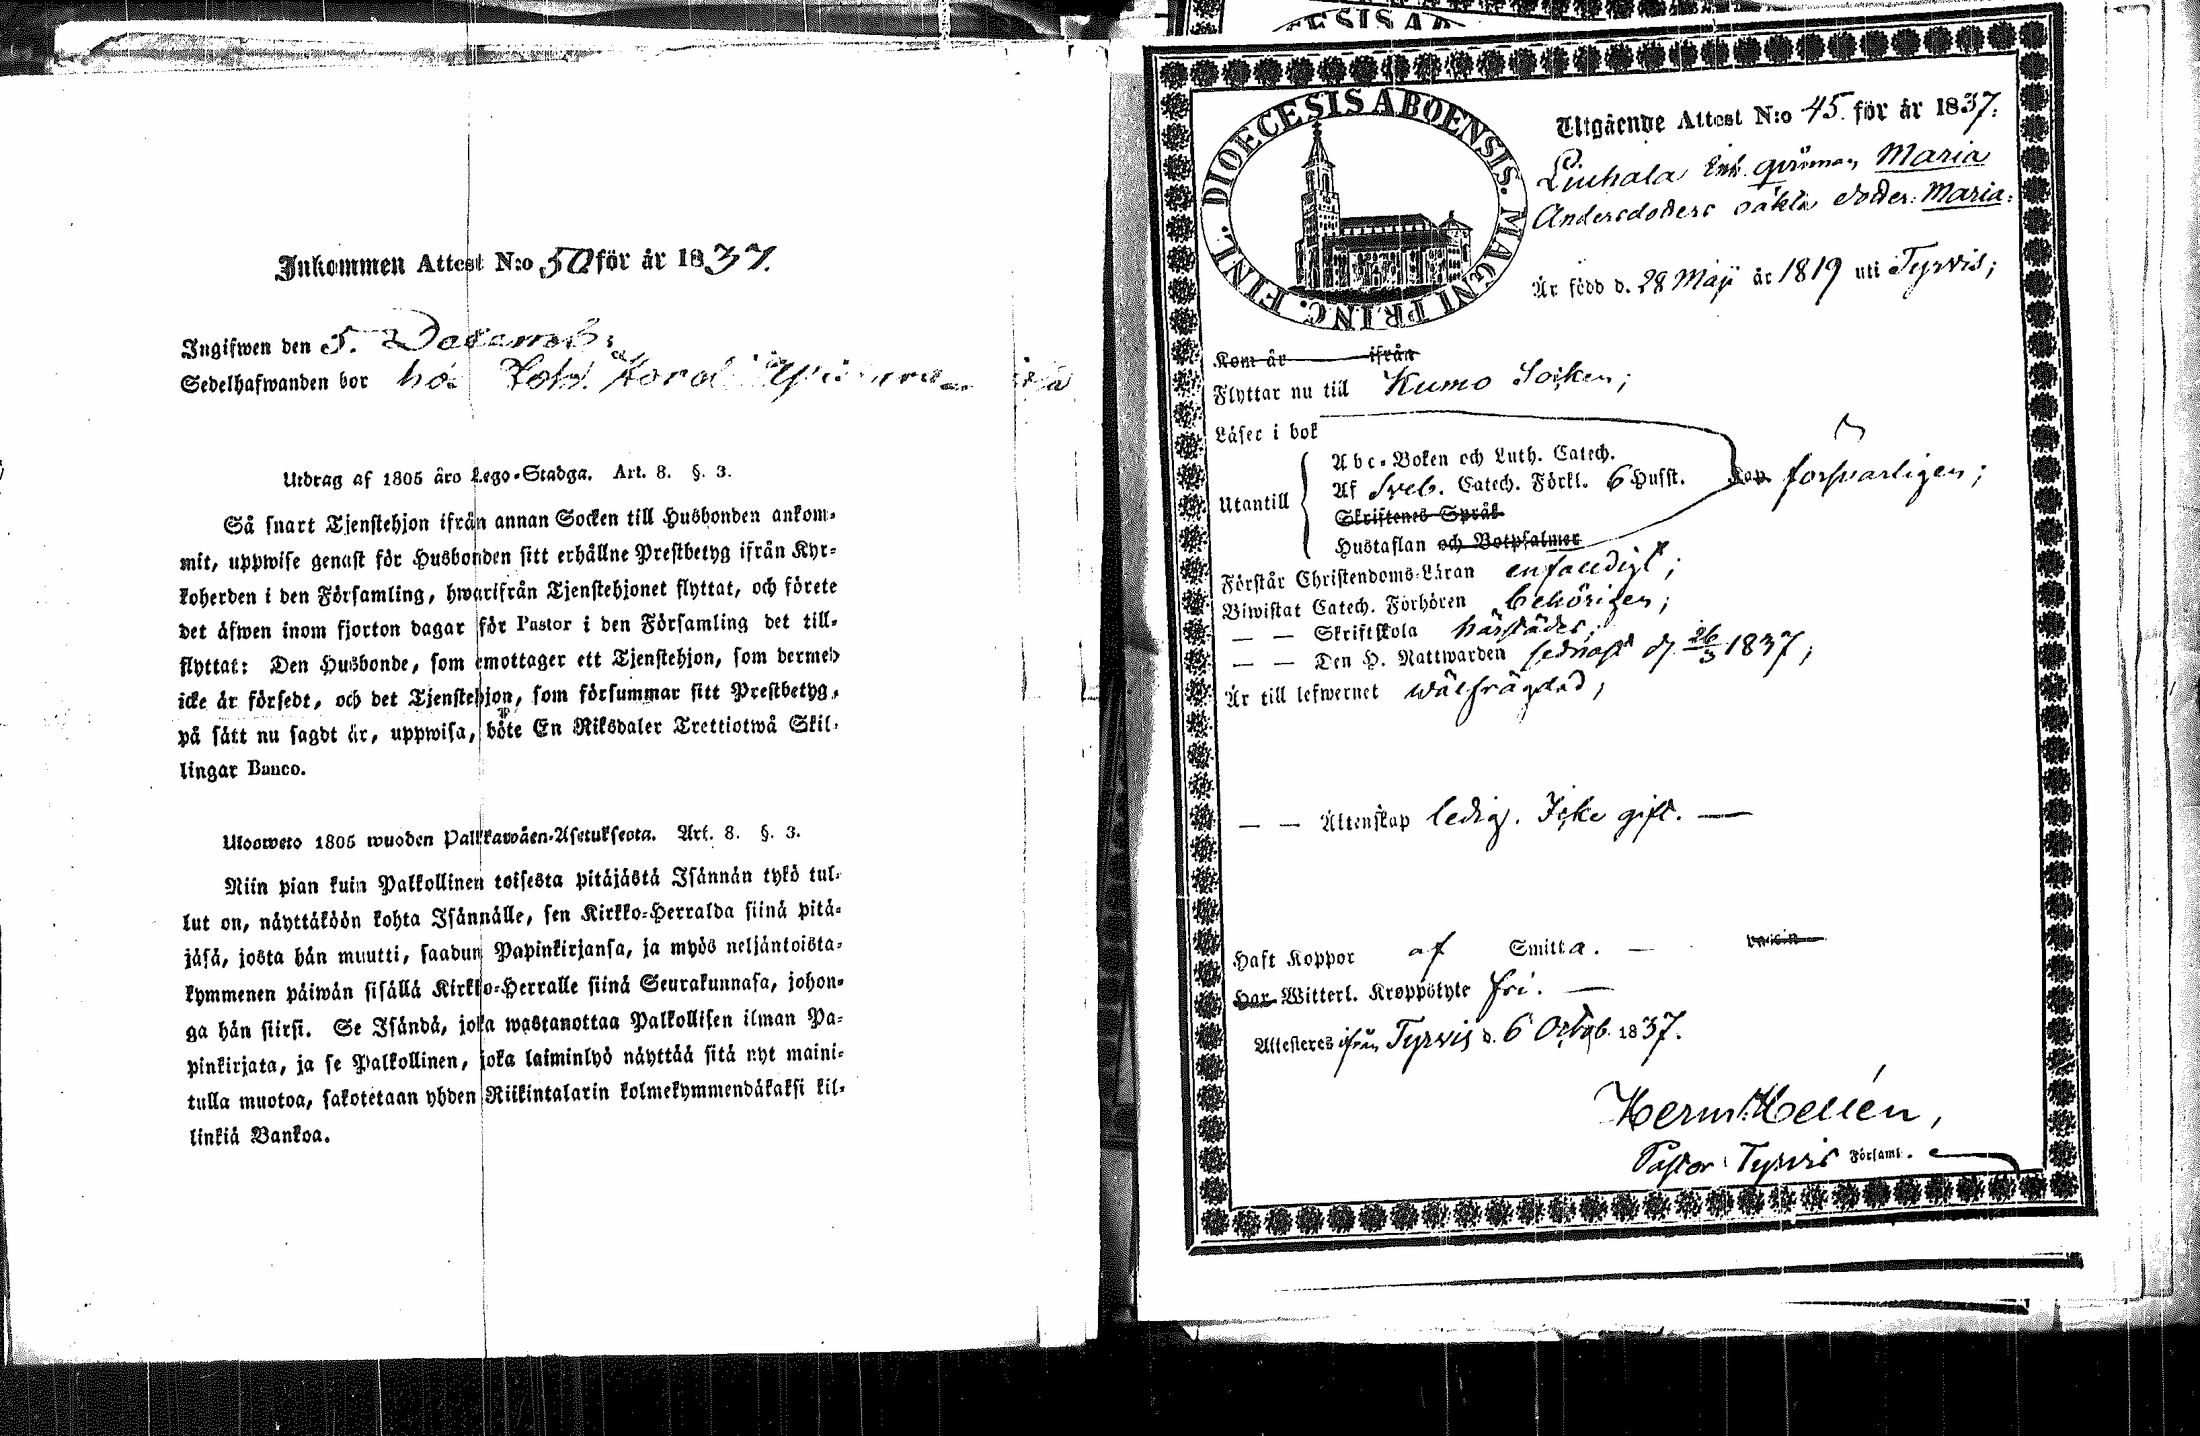 Inkommen Attest N:o 50 för år 1837.
Ingifwen den 5. Decemb:
Sedelhafwanden bor hos
Utdrag af 1805 års Lego-Stadga. Art. 8. §. 3.
Så snart Tjenstehjon ifrån annan Socken till Husbonden ankom-
mit, uppwise genast för Husbonden sitt erhållne Prestbetyg ifrån Kyr-
koherden i den Församling, hwarifrån Tjenstehjonet flyttat, och förete
det äfwen inom fjorton dagar för Pastor i den Församling det till-
flyttat: Den Husbonde, som emottager ett Tjenstehjon, som dermed
icke är försedt, och det Tjenstehjon, som försummar sitt Prestbetyg,
på sätt nu sagdt är, uppwisa, böte En Riksdaler Trettiotwå Skil-
lingar Banco.
Uloswеto 1805 wuoden Palkkawäen-Asetuksesta. Art. 8. §. 3.
Niin pian kuin Palkollinen toisesta pitäjästä Isännän tykö tul-
lut on, näyttäköön kohta Isännälle, sen Kirkko-Herralda siinä pitä-
jäsä, josta hän muutti, saadun Papinkirjansa, ja myös neljäntoista-
kymmenen päiwän sisällä Kirkko-Herralle siinä Seurakunnasa, johon-
ga hän siirsi. Se Isändä, joka wastanottaa Palkollisen ilman Pa-
pinkirjata, ja se Palkollinen, joka laiminlyö näyttää sitä nyt maini-
tulla muotoa, sakotetaan yhden Riikintalarin kolmekymmendäkaksi kil-
linkiä Bankoa.
DIOECESIS ABOENSIS. MAGNI PRINC. FINL.
Utgående Attest N:o 45. för år 1837.
Liuhala Maria
Andersdoters dotter: Maria:
Är född d. 28 Maji år 1819 uti Tyrvis;
Kom år ifrån
Flyttar nu till Kumo Socken;
Läser i bok
Abc-Boken och Luth. Catech.
Utantill Af Sveb. Catech. Förkl. 6 Husst. försvarligen;
Skriftenes Språk
Hustaflan och Botpsalmer
Förstår Christendoms-Läran enfaldigt;
Biwistat Catech. Förhören behörigen;
— — Skriftskola härstädes;
— — Den H. Nattwarden sednast d. 26/3 1837;
Är till lefwernet wälfrägdad;
— — Äktenskap ledig. Icke gift. —
Haft Koppor af Smitta. — vaccin
Har Witterl. Kroppslyte fri. —
Attesteres ifrån Tyrvis d. 6 Octob. 1837.
Herm. Hellén,
Pastor i Tyrvis Församl.